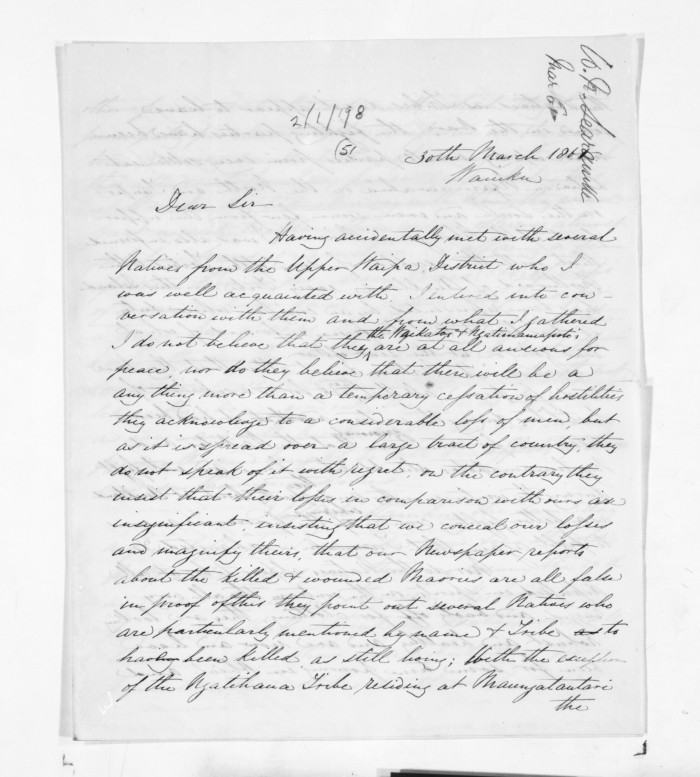 W. N. Searancke
Mar 61
2/1/98
(51
30th March 1861
Waiuku
Dear Sir
Having accidentally met with several
Natives from the Upper Waipa District who I
was well acquainted with I entered into con-
versation with them and from what I gathered
the Waikatos & Ngatimaniapoto's
I do not believe that they are at all anxious for
peace, nor do they believe that there will be a
any thing more than a temporary cessation of hostilities
they acknowledge to a considerable loss of men, but
as it is spread over a large tract of country, they
do not speak of it with regret, on the contrary they
insist that their losses in comparison with ours is
insignificant insisting that we conceal our losses
and magnify theirs, that our Newspaper reports
about the killed & wounded Maories are all false
in proof of this they point out several Natives who
are particularly mentioned by name & Tribe as to
having been killed as still living; With the exception
of the Ngatihaua Tribe residing at Maungatautari
the